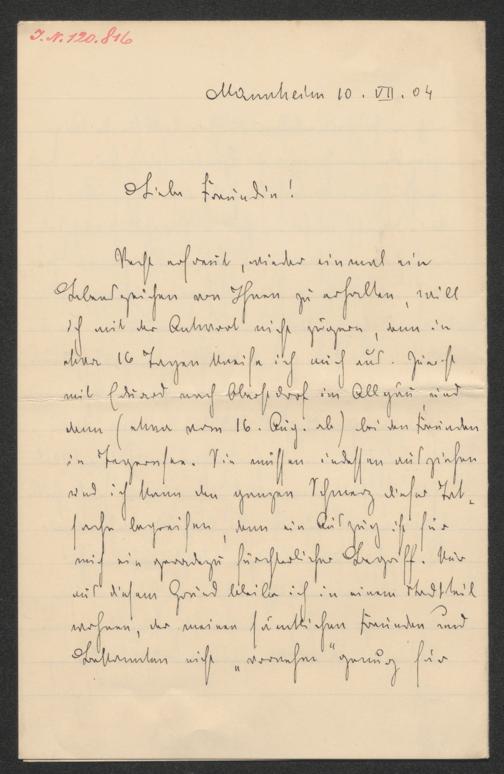 I.N. 120.816
Mannheim 10. VII. 04
Liebe Freundin!
Recht erfreut, wieder einmal ein
Lebenszeichen von Ihnen zu erhalten, will
ich mit der Antwort nicht zögern, denn in
etwa 16 Tagen kneife ich mich aus. Zuerst
mit Eduard nach Oberstdorf im Allgäu und
dann (etwa vom 16. Aug. ab) bei den Freunden
in Tegernsee. Sie müssen indessen ausziehen
und ich kann den ganzen Schmerz dieser Tat-
sache begreifen, denn ein Auszug ist für
mich ein geradezu fürchterlicher Begriff. Nur
aus diesem Grund bleibe ich in einem Stadtteil
wohnen, der meinen sämtlichen Freunden und
Bekannten nicht „vornehm" genug für